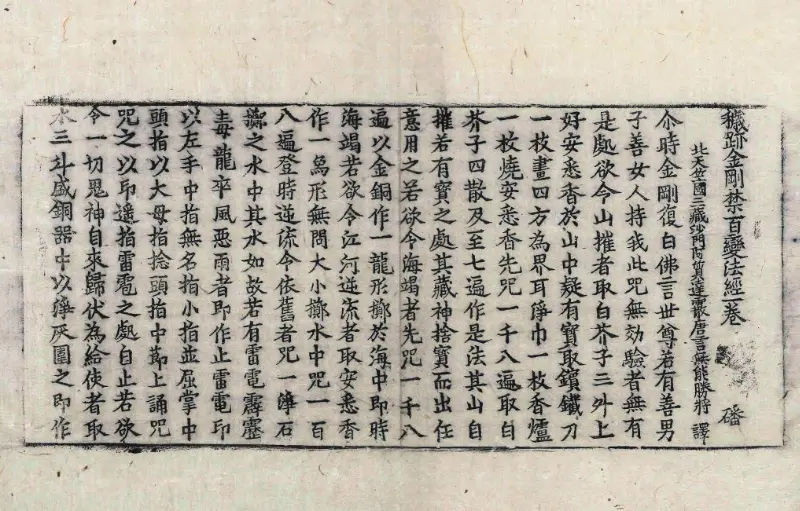 穢跡金剛禁百變法經一卷
磻
北天竺國三藏沙門阿質達霰唐言無能勝將 譯
尒時金剛復白佛言世尊若有善男
子善女人持我此呪無効驗者無有
是處欲令山摧者取白芥子三升上
好安悉香於山中疑有寶取鑌鐵刀
一枚畫四方為界耳淨巾一枚香爐
一枚燒安悉香先呪一千八遍取白
芥子四散及至七遍作是法其山自
摧若有寶之處其藏神捨寶而出任
意用之若欲令海竭者先呪一千八
遍以金銅作一龍形擲於海中即時
海竭若欲令江河逆流者取安悉香
作一鳥形無問大小擲水中呪一百
八遍登時逆流令依舊者呪一淨石
擲之水中其水如故若有雷電霹靂
毒龍卒風惡雨者即作止雷電印
以左手中指無名指小指並屈掌中
頭指以大母指捻頭指中節上誦呪
呪之以印遙指雷雹之處自止若欲
令一切鬼神自來歸伏為給使者取
水三斗盛銅器中以淨灰圍之即作